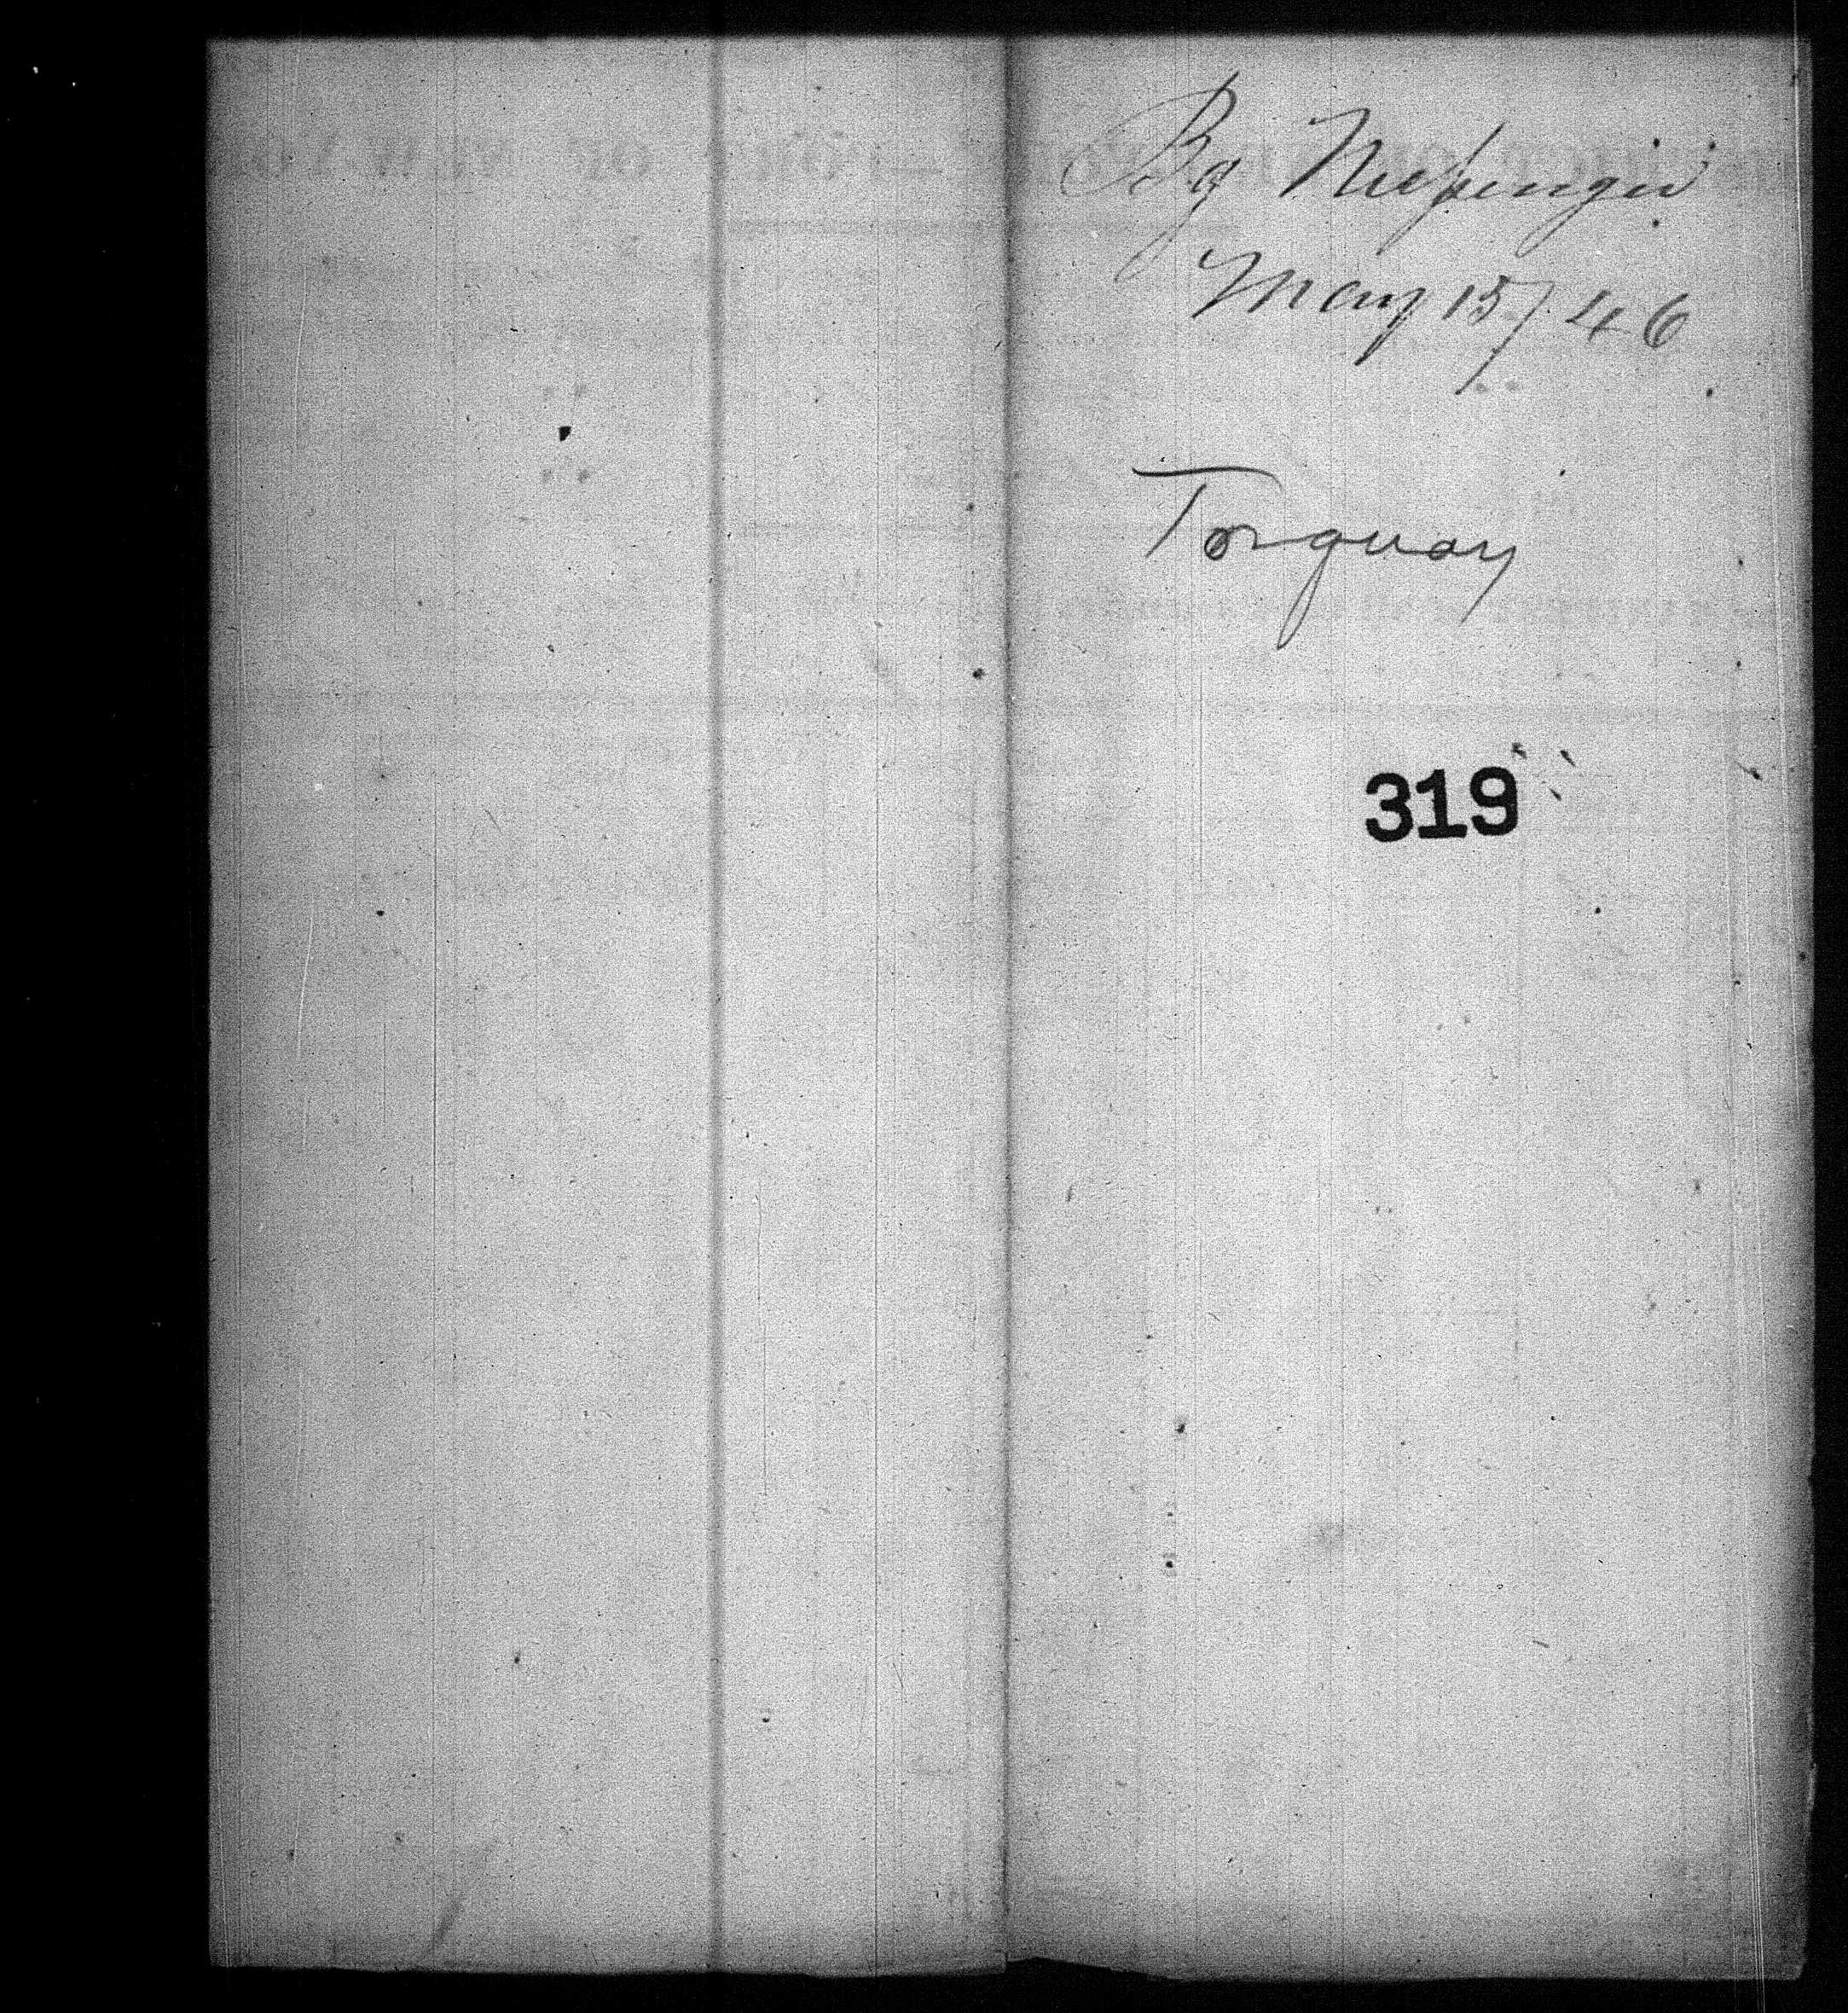 Bg Messinger
May 15/46
Torquay
319